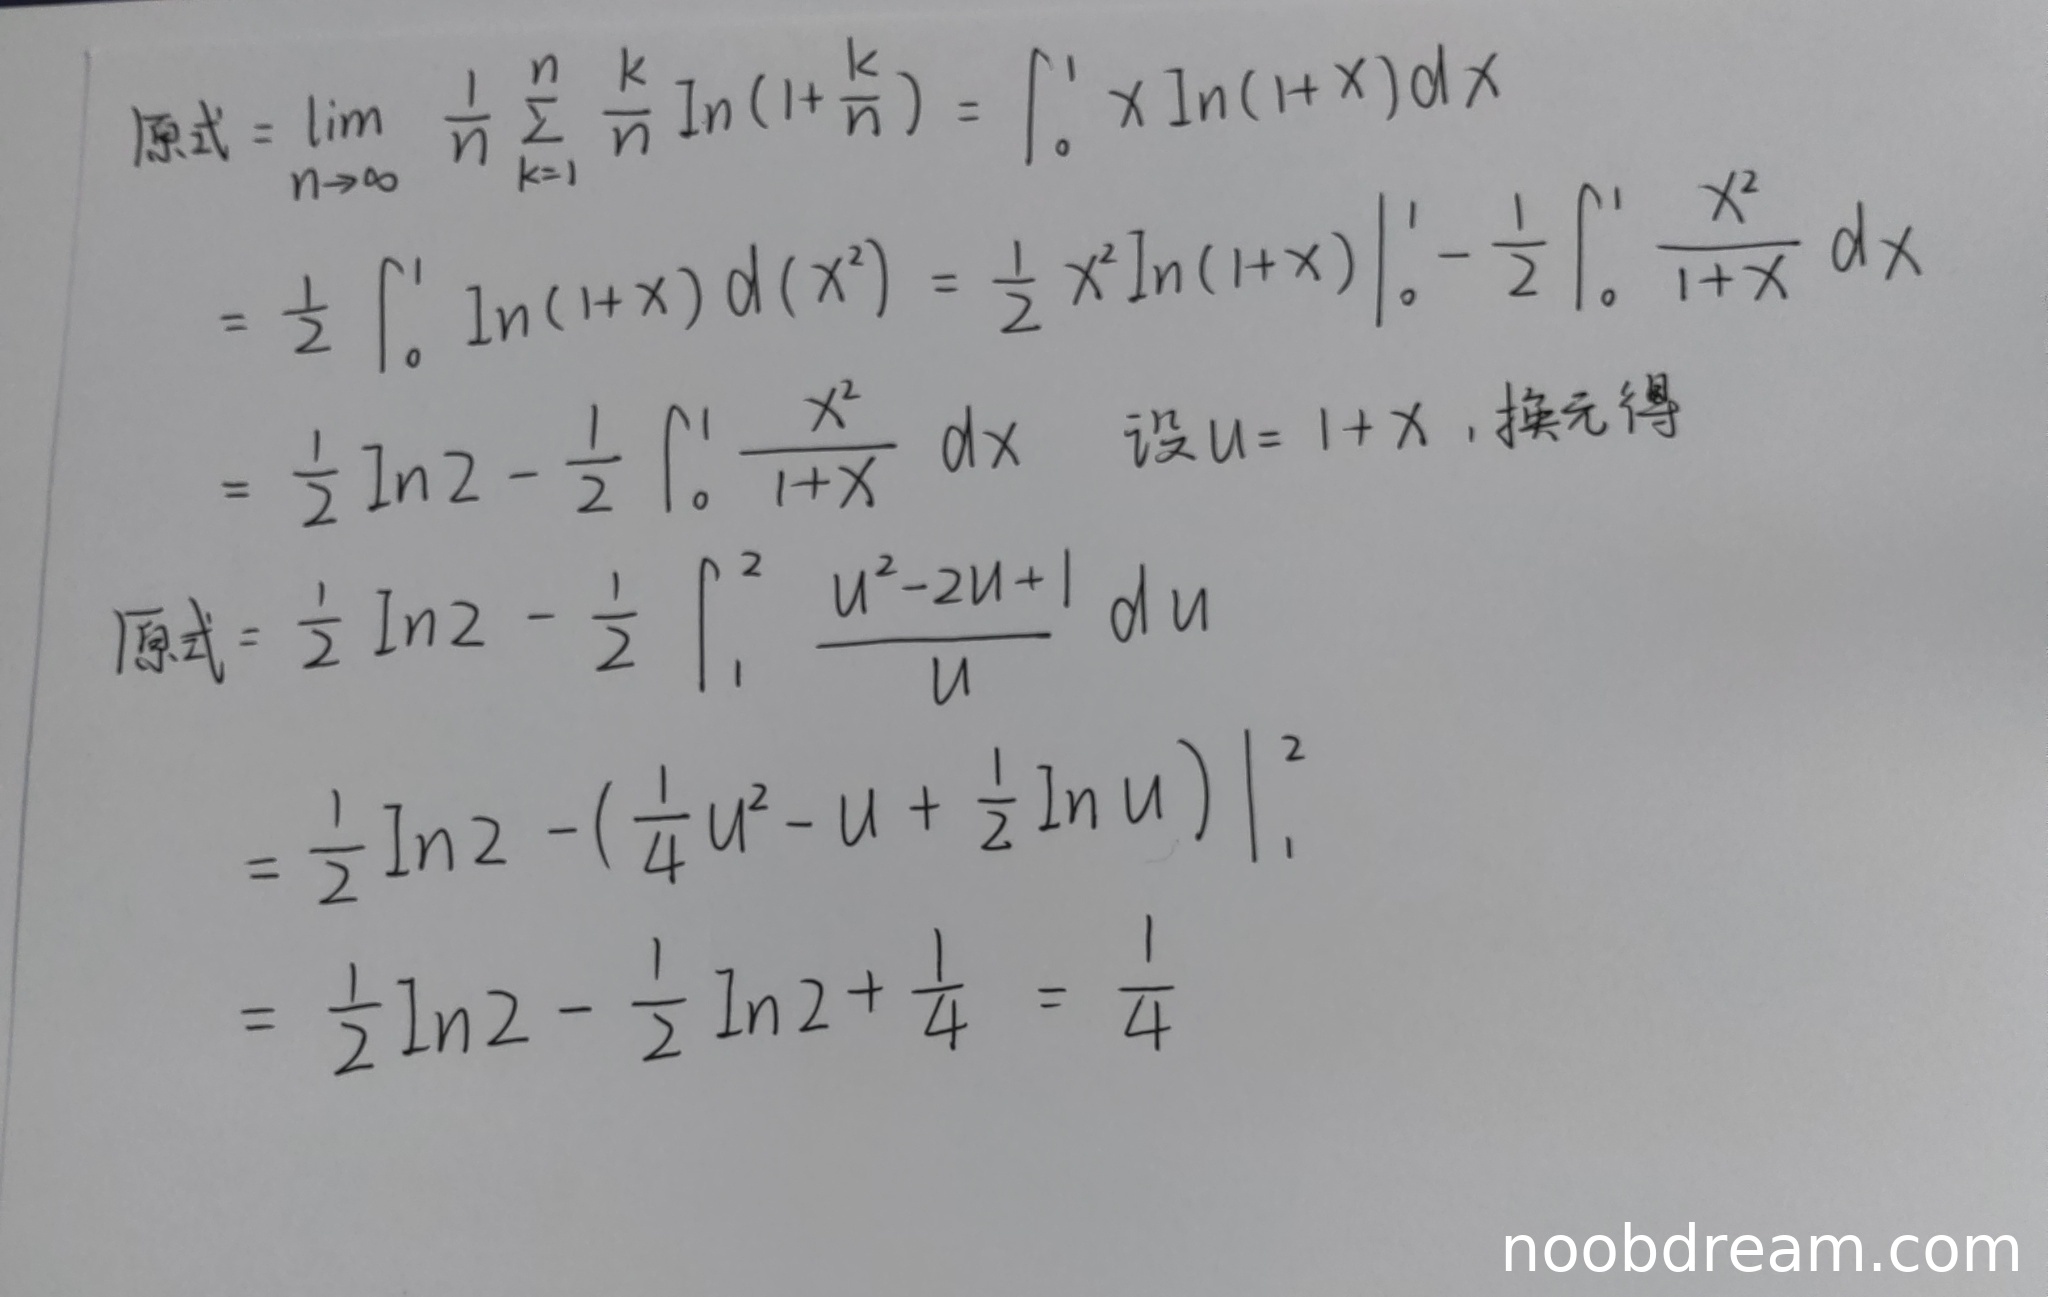 原式 = lim n→∞ 1/n Σ k=1 n k/n ln(1+k/n) = ∫₀¹ x ln(1+x)dx
= 1/2 ∫₀¹ ln(1+x) d(x²) = 1/2 x² ln(1+x)|₀¹ - 1/2 ∫₀¹ x²/(1+x) dx
= 1/2 ln2 - 1/2 ∫₀¹ x²/(1+x) dx 设u=1+x,换元得
原式 = 1/2 ln2 - 1/2 ∫₁² (u²-2u+1)/u du
= 1/2 ln2 -(1/4 u² - u + 1/2 ln u)|₁²
= 1/2 ln2 - 1/2 ln2 + 1/4 = 1/4
noobdream.com